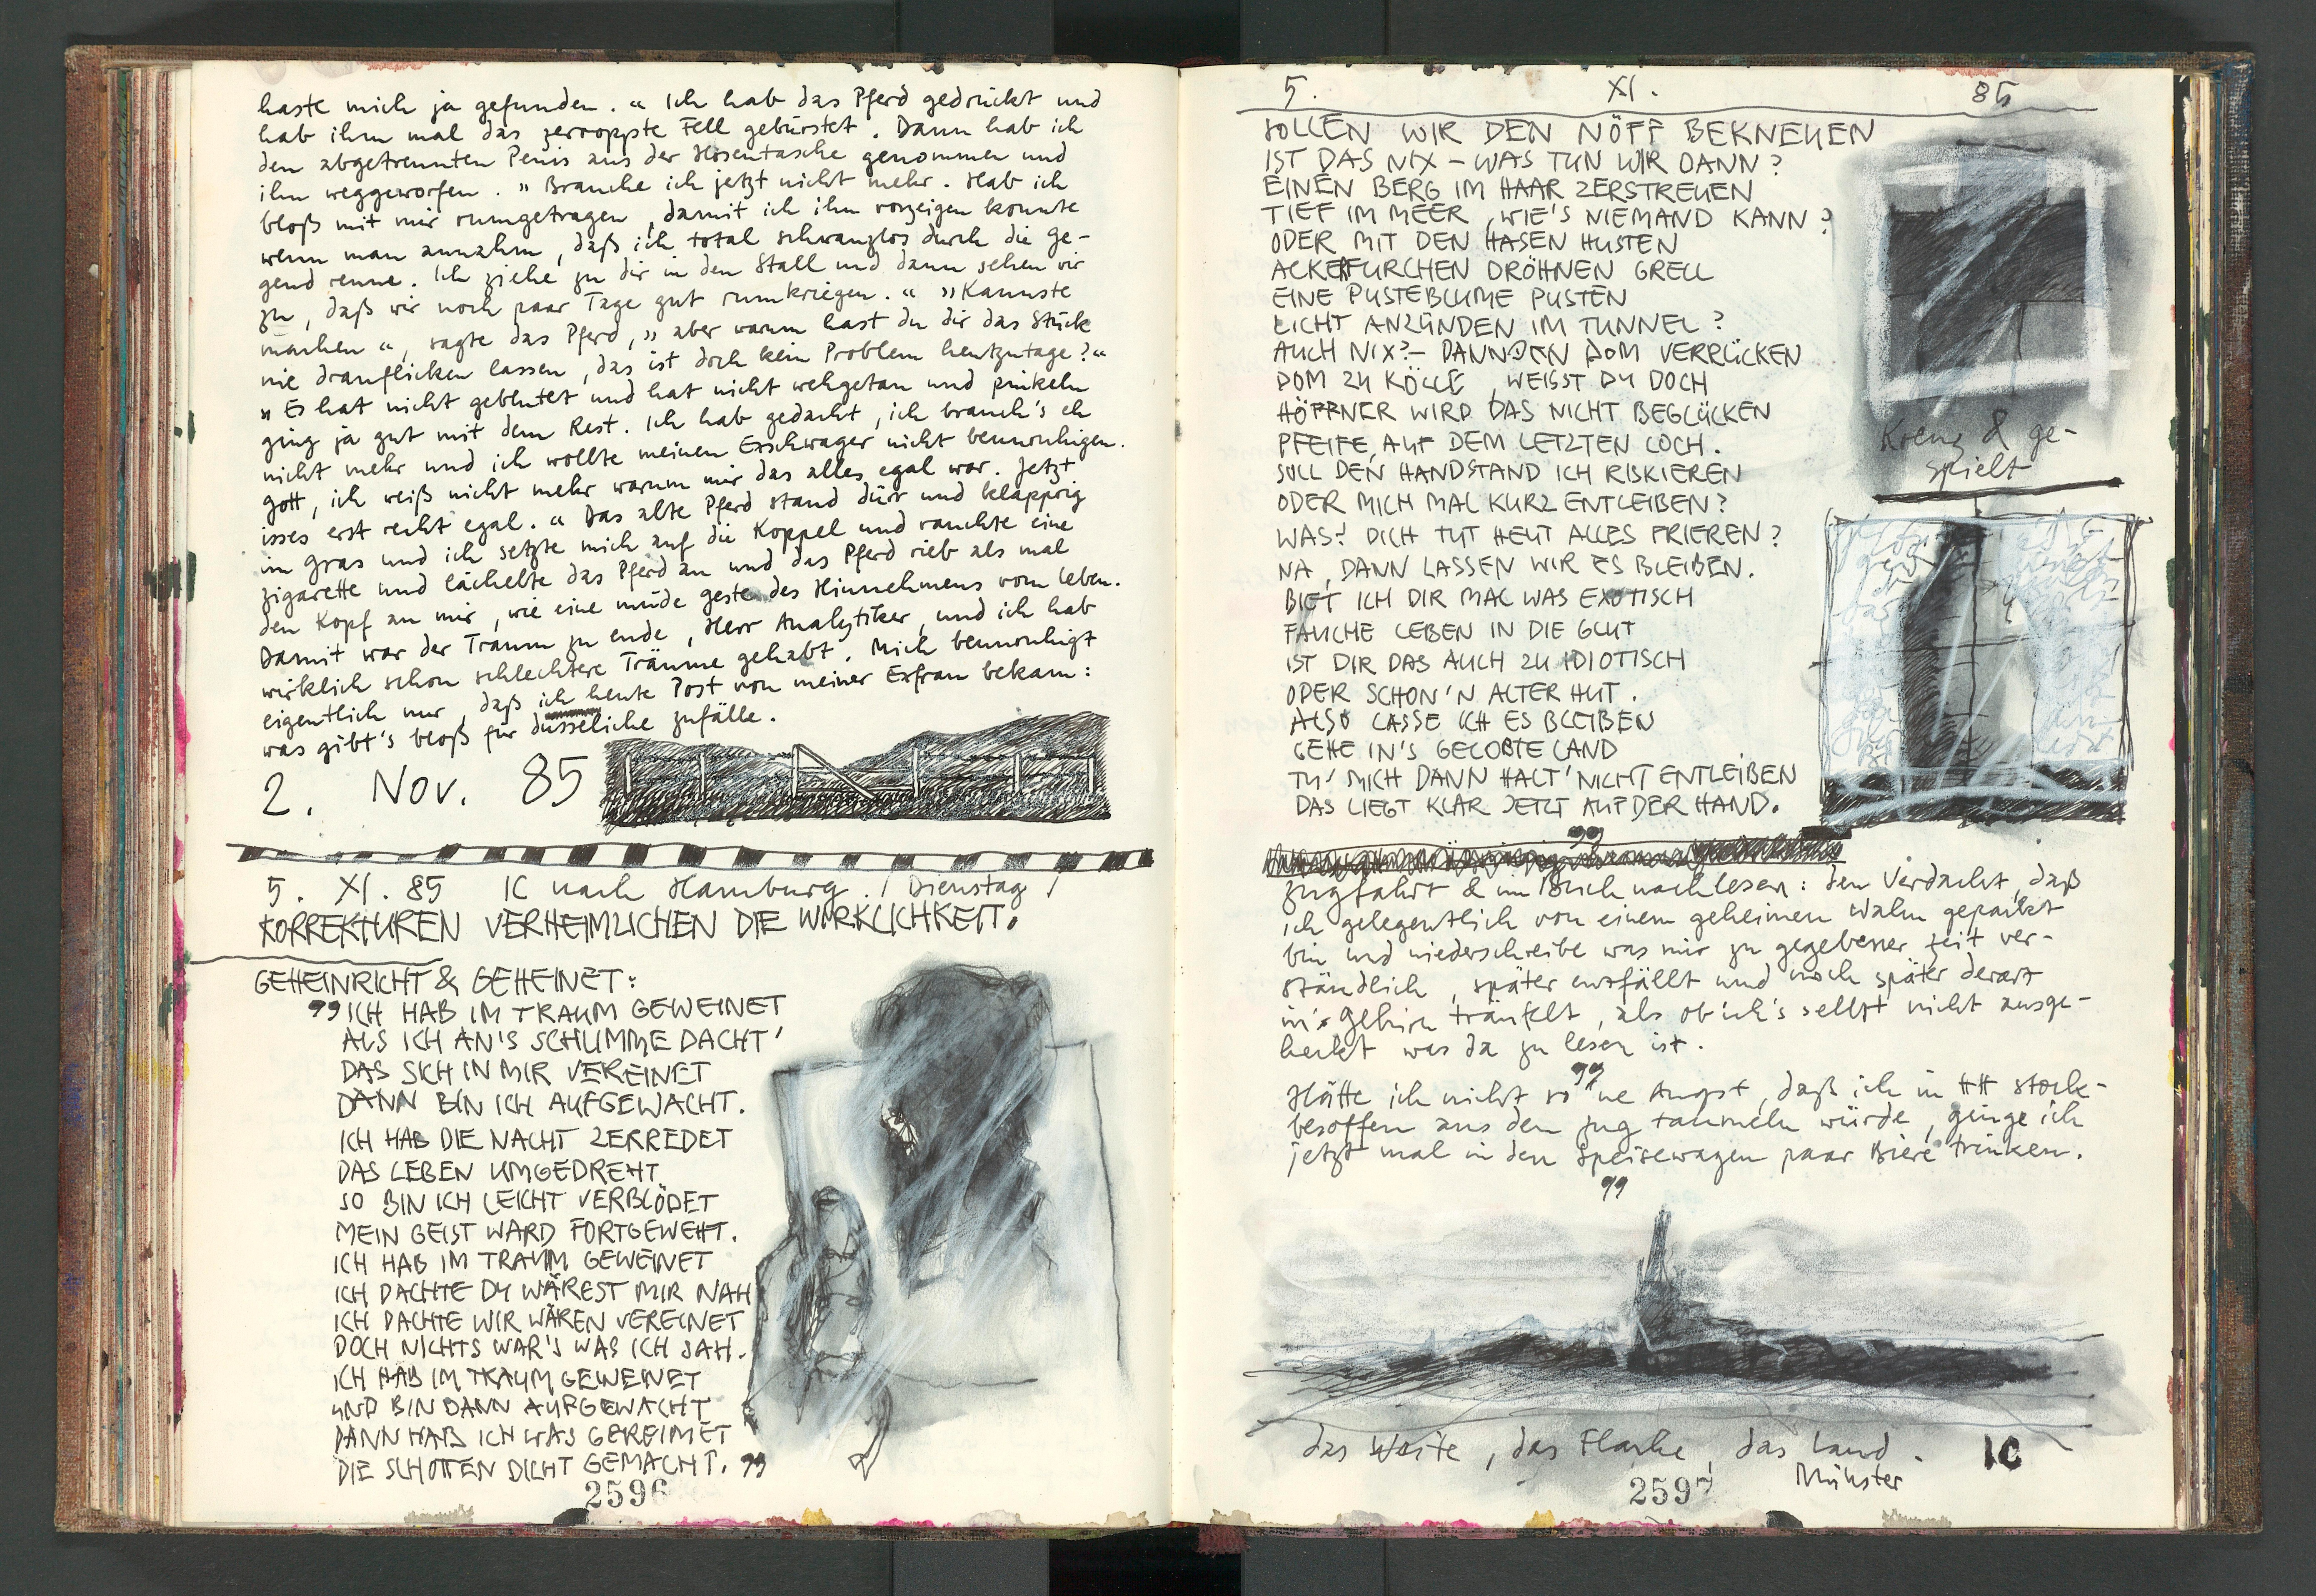 haste mich ja gefunden." Ich hab das Pferd gedrückt und
hab ihm mal das zerroppte Fell gebürstet. Dann hab ich
den abgetrennten Penis aus der Hosentasche genommen und
ihn weggeworfen. "Brauche ich jetzt nicht mehr. Hab ich
bloß mit mir rumgetragen, damit ich ihn vorzeigen konnte
wenn man annahm, daß ich total schwanzlos durch die Ge-
gend renne. Ich ziehe zu dir in den Stall und dann sehen wir
zu, daß wir noch paar Tage gut rumkriegen." "Kannste
machen", sagte das Pferd, "aber warum hast du dir das Stück
nie draufflicken lassen, das ist doch kein Problem heutzutage?"
"Es hat nicht geblutet und hat nicht wehgetan und pinkeln
ging ja gut mit dem Rest. Ich hab gedacht, ich brauch's eh
nicht mehr und ich wollte meinen Exschwager nicht beunruhigen.
Gott, ich weiß nicht mehr warum mir das alles egal war. Jetzt
isses erst recht egal." Das alte Pferd stand dürr und klapprig
im Gras und ich setzte mich auf die Koppel und rauchte eine
Zigarette und lächelte das Pferd an und das Pferd rieb als mal
den Kopf an mir, wie eine müde Geste des Hinnehmens vom Leben.
Damit war der Traum zu Ende, Herr Analytiker, und ich hab
wirklich schon schlechtere Träume gehabt. Mich beunruhigt
eigentlich nur, daß ich heute Post von meiner Exfrau bekam:
was gibt's bloß für dusseliche Zufälle.
2. Nov. 85
5. XI. 85 IC nach Hamburg. / Dienstag /
KORREKTUREN VERHEIMLICHEN DIE WIRKLICHKEIT.
GEHEINRICHT & GEHEINET:
"ICH HAB IM TRAUM GEWEINET
ALS ICH AN'S SCHLIMME DACHT'
DAS SICH IN MIR VEREINET
DANN BIN ICH AUFGEWACHT.
ICH HAB DIE NACHT ZERREDET
DAS LEBEN UMGEDREHT
SO BIN ICH LEICHT VERBLÖDET
MEIN GEIST WARD FORTGEWEHT.
ICH HAB IM TRAUM GEWEINET
ICH DACHTE DU WÄREST MIR NAH
ICH DACHTE WIR WÄREN VEREINET
DOCH NICHTS WAR'S WAS ICH SAH.
ICH HAB IM TRAUM GEWEINET
UND BIN DANN AUFGEWACHT
DANN HAB ICH WAS GEREIMET
DIE SCHOTTEN DICHT GEMACHT."
2596
5. XI. 85
SOLLEN WIR DEN NÖFF BEKNEUEN
IST DAS NIX – WAS TUN WIR DANN?
EINEN BERG IM HAAR ZERSTREUEN
TIEF IM MEER, WIE'S NIEMAND KANN?
ODER MIT DEN HASEN HUSTEN
ACKERFURCHEN DRÖHNEN GRELL
EINE PUSTEBLUME PUSTEN
LICHT ANZÜNDEN IM TUNNEL?
AUCH NIX? – DANN DEN DOM VERRÜCKEN
DOM ZU KÖLLE, WEISST DU DOCH
HÖFFNER WIRD DAS NICHT BEGLÜCKEN
PFEIFE, AUF DEM LETZTEN LOCH.
SOLL DEN HANDSTAND ICH RISKIEREN
ODER MICH MAL KURZ ENTLEIBEN?
WAS? DICH TUT HEUT ALLES FRIEREN?
NA, DANN LASSEN WIR ES BLEIBEN.
BIET ICH DIR MAL WAS EXOTISCH
FAUCHE LEBEN IN DIE GLUT
IST DIR DAS AUCH ZU IDIOTISCH
ODER SCHON'N ALTER HUT.
ALSO LASSE ICH ES BLEIBEN
GEHE IN'S GELOBTE LAND
TU' MICH DANN HALT' NICHT ENTLEIBEN
DAS LIEGT KLAR JETZT AUF DER HAND.
Kreuz & ge-
spielt
Zugfahrt & im Buch nachlesen: den Verdacht, daß
ich gelegentlich von einem geheimen Wahn gepackt
bin und niederschreibe was mir zu gegebener Zeit ver-
ständlich, später entfällt und noch später derart
in's Gehirn träufelt, als ob ich's selbst nicht ausge-
heckt was da zu lesen ist.
Hätte ich nicht so 'ne Angst, daß ich in HH stock-
besoffen aus dem Zug taumeln würde, ginge ich
jetzt mal in den Speisewagen paar Biere trinken.
das Weite, das Flache, das Land. IC
Münster
2597